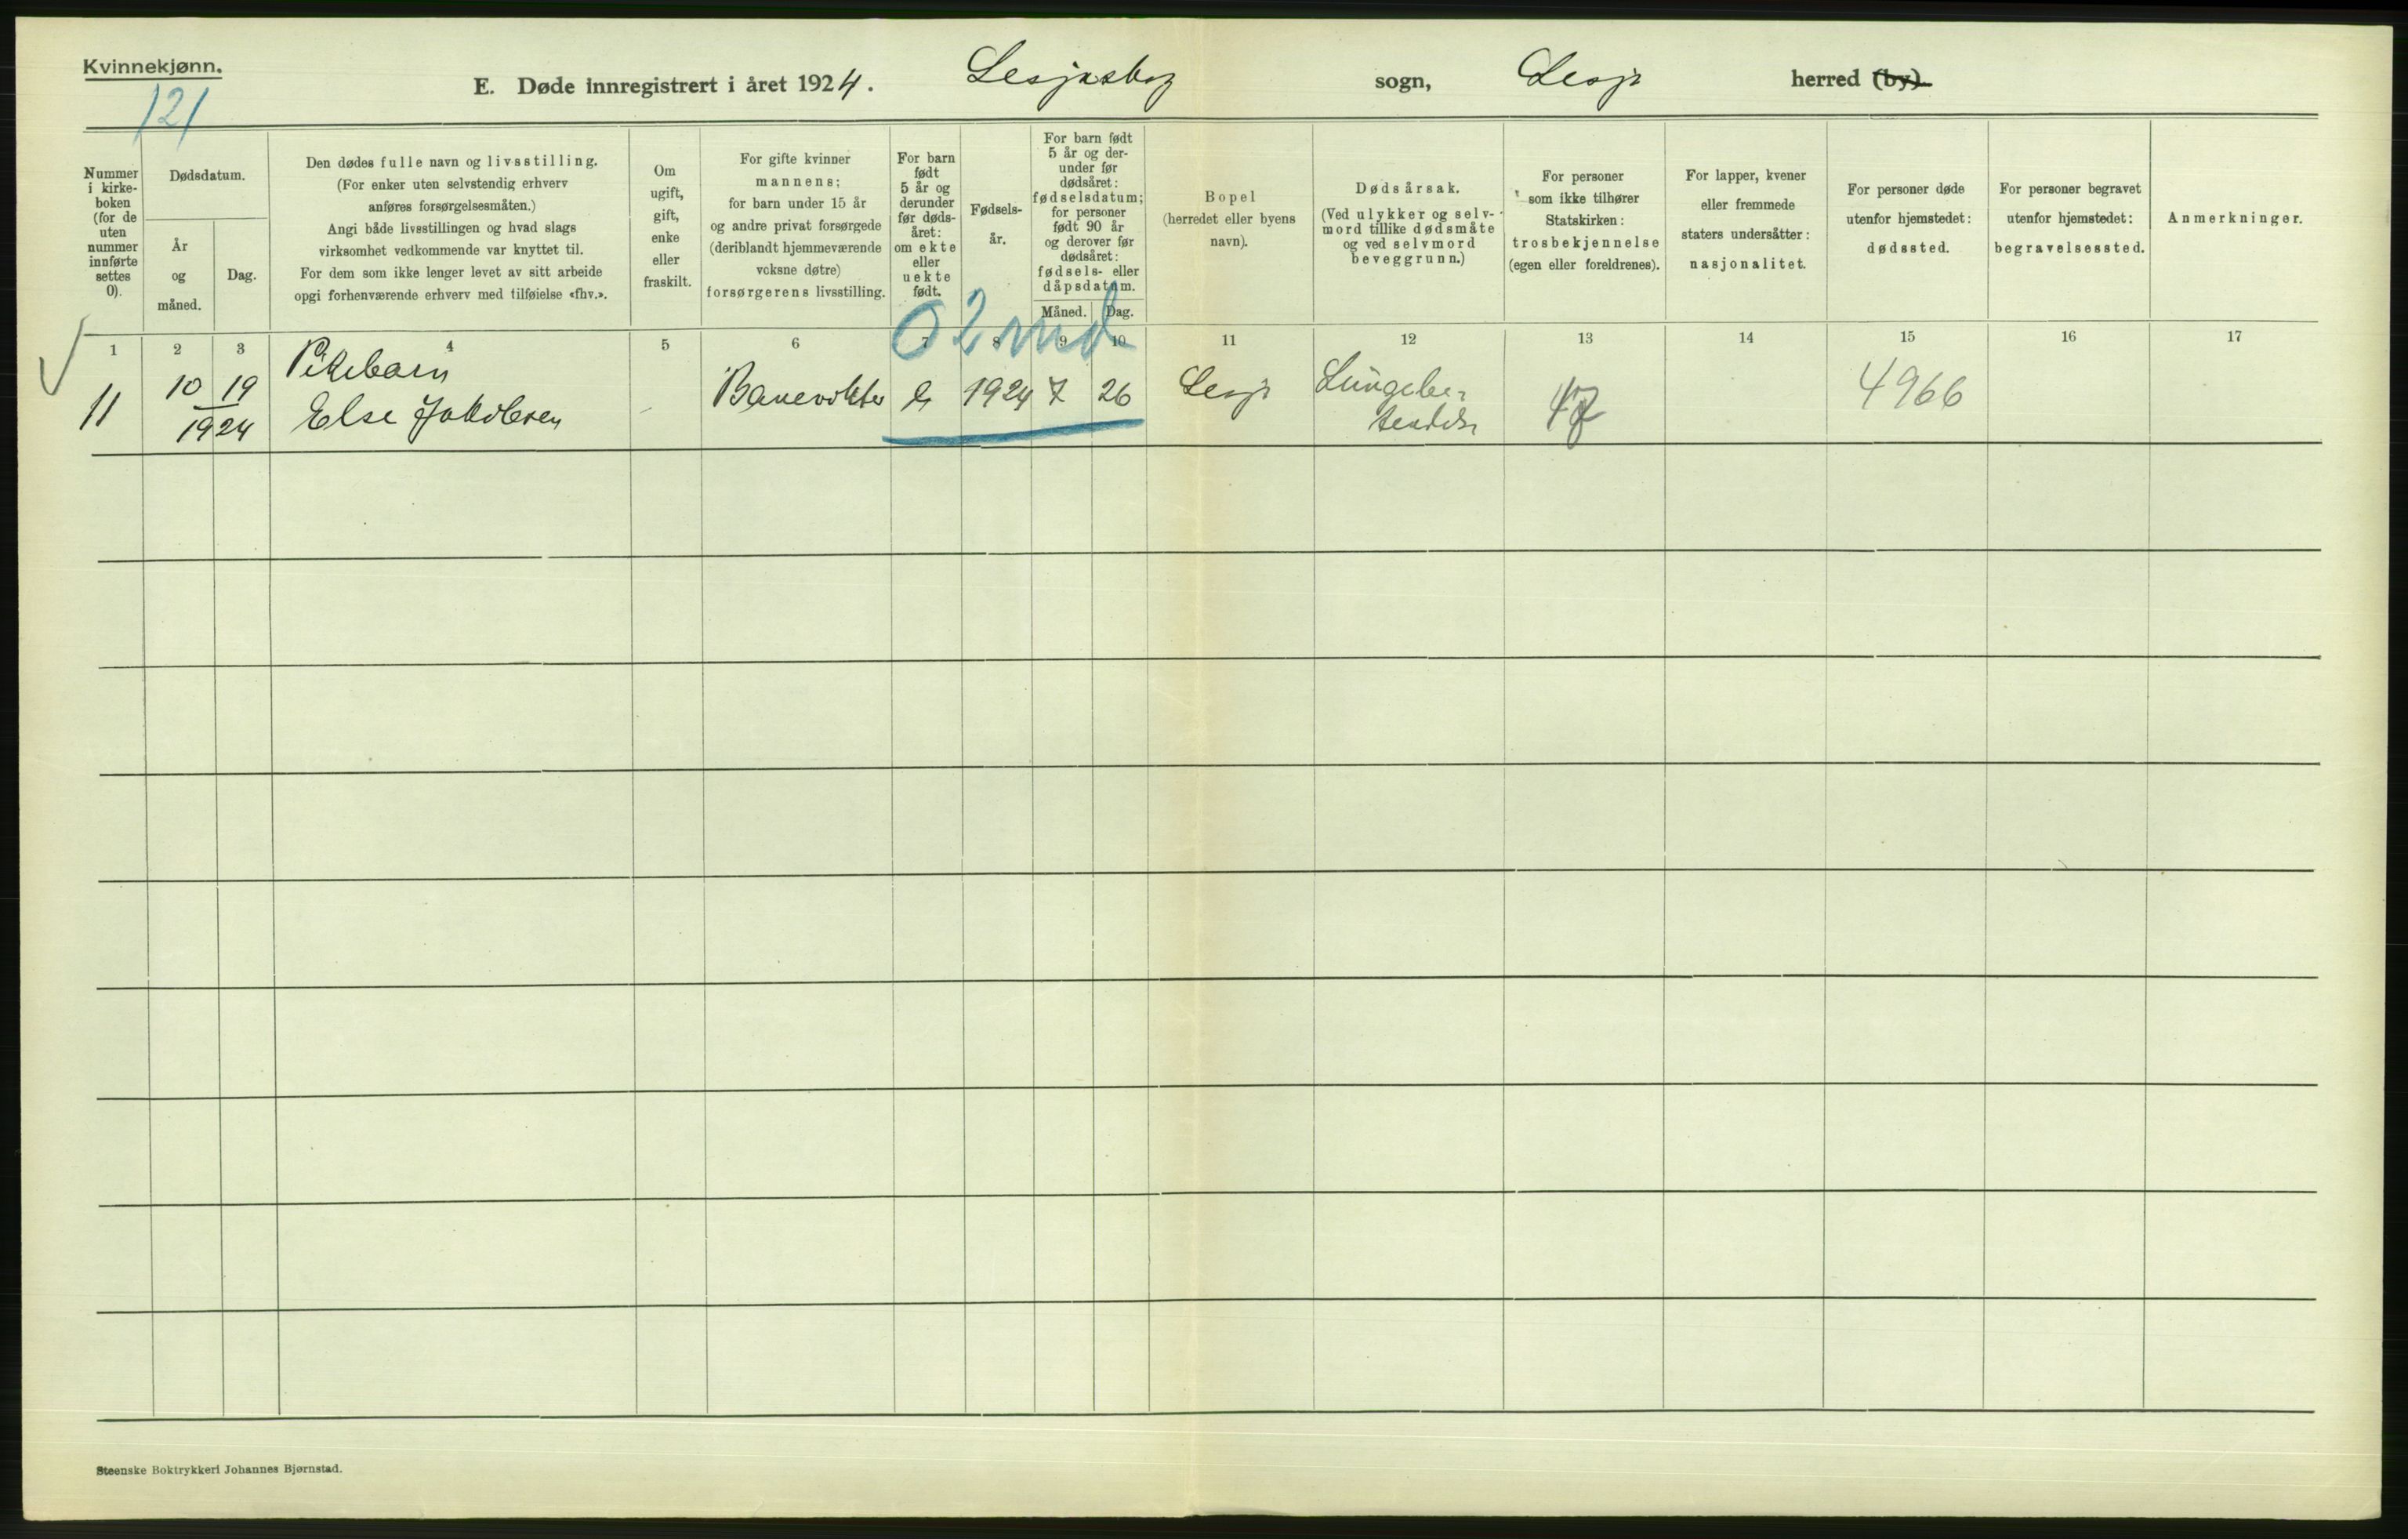 Kvinnekjønn.
121
E. Døde innregistrert i året 1924. Lesjaskog sogn, Lesja herred (by).
Nummer i kirke-boken (for de uten nummer innførte settes 0).
Dødsdatum.
År og måned.
Dag.
Den dødes fulle navn og livsstilling.
(For enker uten selvstendig erhverv
anføres forsørgelsesmåten.)
Angi både livsstillingen og hvad slags
virksomhet vedkommende var knyttet til.
For dem som ikke lenger levet av sitt arbeide
opgi forhenværende erhverv med tilføielse «fhv.».
Om
ugift,
gift,
enke
eller
fraskilt.
For gifte kvinner
mannens;
for barn under 15 år
og andre privat forsørgede
(deriblandt hjemmeværende
voksne døtre)
forsørgerens livsstilling.
For barn
født
5 år og
derunder
før døds-
året:
om ekte
eller
uekte
født.
Fødsels-
år.
For barn født
5 år og der-
under før
dødsåret:
fødselsdatum;
for personer
født 90 år
og derover før
dødsåret:
fødsels- eller
dåpsdatum.
Måned. Dag.
Bopel
(herredet eller byens
navn).
Dødsårsak.
(Ved ulykker og selv-
mord tillike dødsmåte
og ved selvmord
beveggrunn.)
For personer
som ikke tilhører
Statskirken:
trosbekjennelse
(egen eller foreldrenes).
For lapper, kvener
eller fremmede
staters undersåtter:
nasjonalitet.
For personer døde
utenfor hjemstedet:
dødssted.
For personer begravet
utenfor hjemstedet:
begravelsessted.
Anmerkninger.
1 2 3 4 5 6 7 8 9 10 11 12 13 14 15 16 17
0 2 md
Pikebarn
11 10 19 Else Jakobsen - Banevokter e 1924 7 26 Lesja Lungebe-
1924
47
4966
Steenske Boktrykkeri Johannes Bjørnstad.